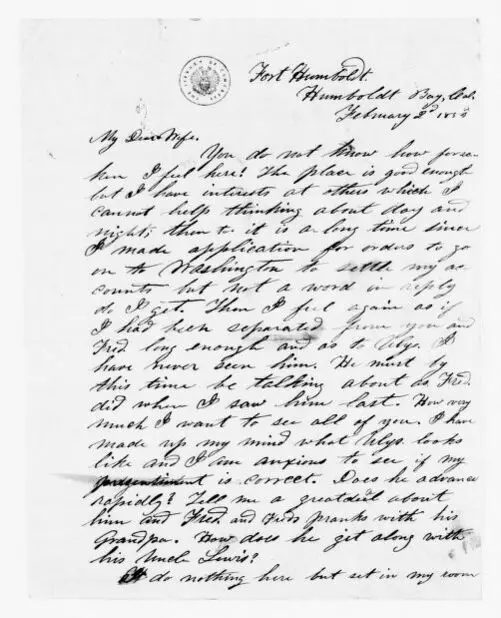 Fort Humboldt.
Humboldt Bay, Cal.
February 2d 185
My Dear Wife.
You do not know how forsa-
ken I feel here! The place is good enough
but I have interests at others which I
cannot help thinking about day and
night; then to it is a long time since
I made application for orders to go
on to Washington to settle my ac
counts but not a word in reply
do I get. Then I feel again as if
I had been separated from you and
Fred. long enough and as to Ulys. I
have never seen him. He must by
this time be talking about as Fred.
did when I saw him last. How very
much I want to see all of you. I have
made up my mind what Ulys. looks
like and I am anxious to see if my
presentiment is correct. Does he advance
rapidly? Tell me a great deal about
him and Fred. and Freds pranks with his
Grandpa. How does he get along with
his Uncle Lewis?
I do nothing here but set in my room